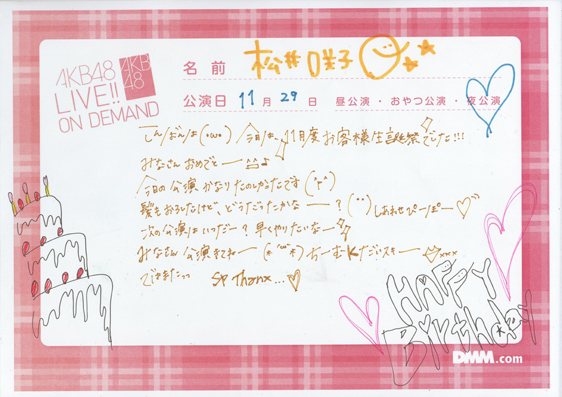 AKB48
LIVE!!
ON DEMAND
AKB
48
名前 松井咲子
公演日 11月29日 昼公演・おやつ公演・夜公演
今日は、11月度お客様生誕祭でした!!!
みなさんおめでとー
今日の公演かなりたのしかったです
髪もおろしたけど、どうだったかなー?
しあわせぴーぽー
次の公演はいつだー?早くやりたいなー
みなさん公演きてねー
ちーむKだいスキー
xxx
Sp Thanx...
HAPPY
Birthday
DMM.com